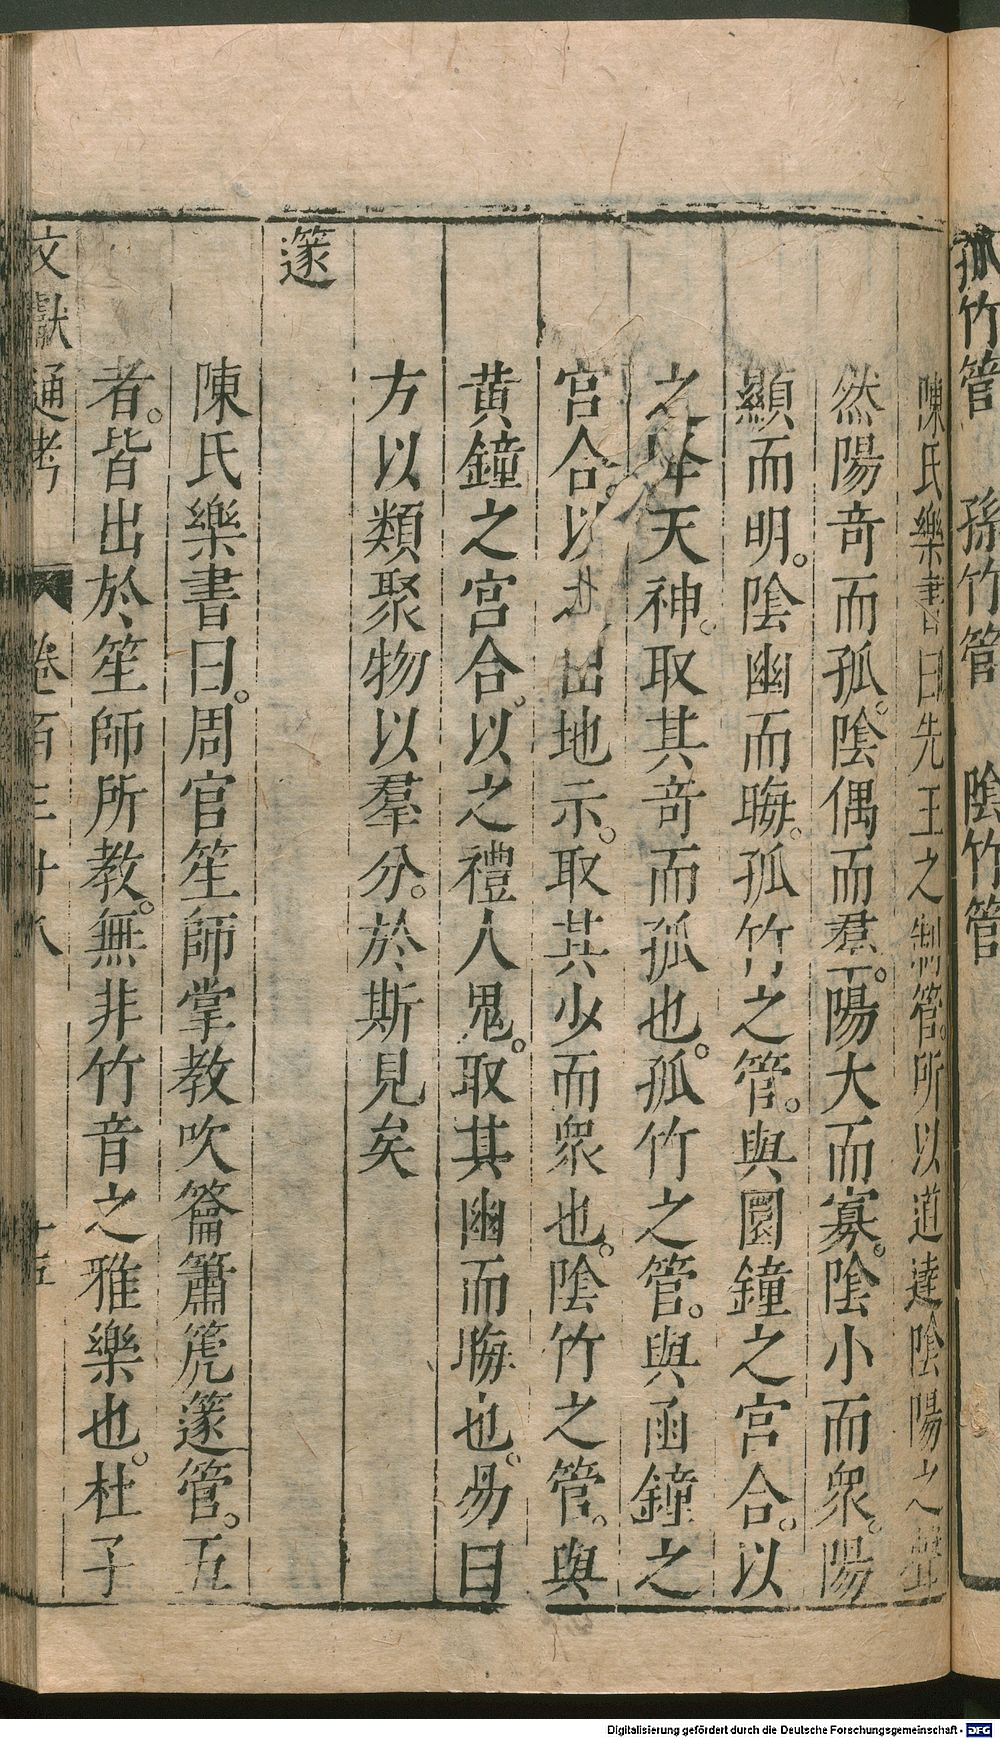 孤竹管　孫竹管　陰竹管
陳氏樂書曰先王之制管。所以道達陰陽之聲
然陽竒而孤。陰偶而羣。陽大而寡。陰小而衆。陽
顯而明。陰幽而晦。孤竹之管。與圜鐘之宮合。以
之降天神。取其竒而孤也。孤竹之管。與函鐘之
宮合。以之出地示。取其少而衆也。陰竹之管。與
黃鐘之宮合。以之禮人鬼。取其幽而晦也。易曰
方以類聚物以羣分。於斯見矣
篴
陳氏樂書曰。周官笙師掌教吹籥簫篪篴管。五
者。皆出於笙師所教。無非竹音之雅樂也。杜子
文獻通考　卷一百三十八　十五
Digitalisierung gefördert durch die Deutsche Forschungsgemeinschaft - DFG